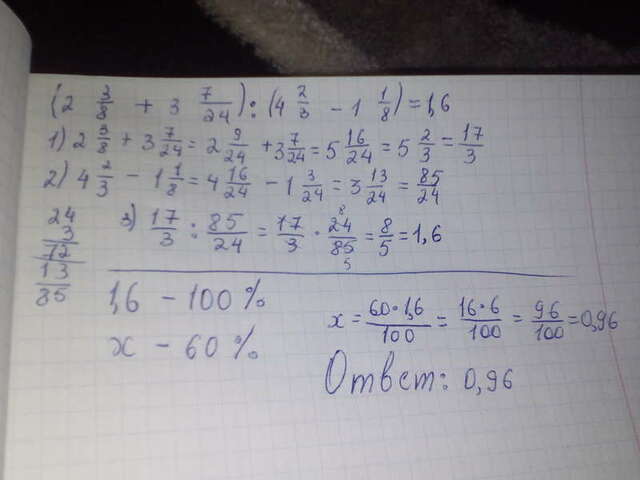 (2 3/8 + 3 7/24) : (4 2/3 - 1 1/8) = 1,6
1) 2 3/8 + 3 7/24 = 2 9/24 + 3 7/24 = 5 16/24 = 5 2/3 = 17/3
2) 4 2/3 - 1 1/8 = 4 16/24 - 1 3/24 = 3 13/24 = 85/24
3) 17/3 : 85/24 = 17/3 · 24/85 = 8/5 = 1,6
8
5
24
3
72
13
85
1,6 - 100 %
x - 60 %
x = 60·1,6/100 = 16·6/100 = 96/100 = 0,96
Ответ: 0,96